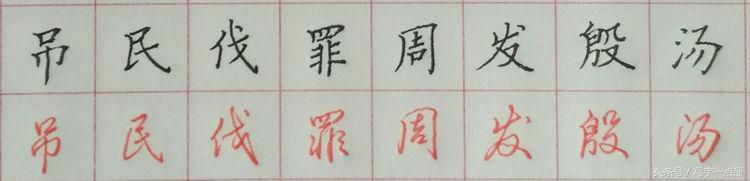 吊民伐罪周发殷汤
吊民伐罪周发殷汤
头条号/写字一点通